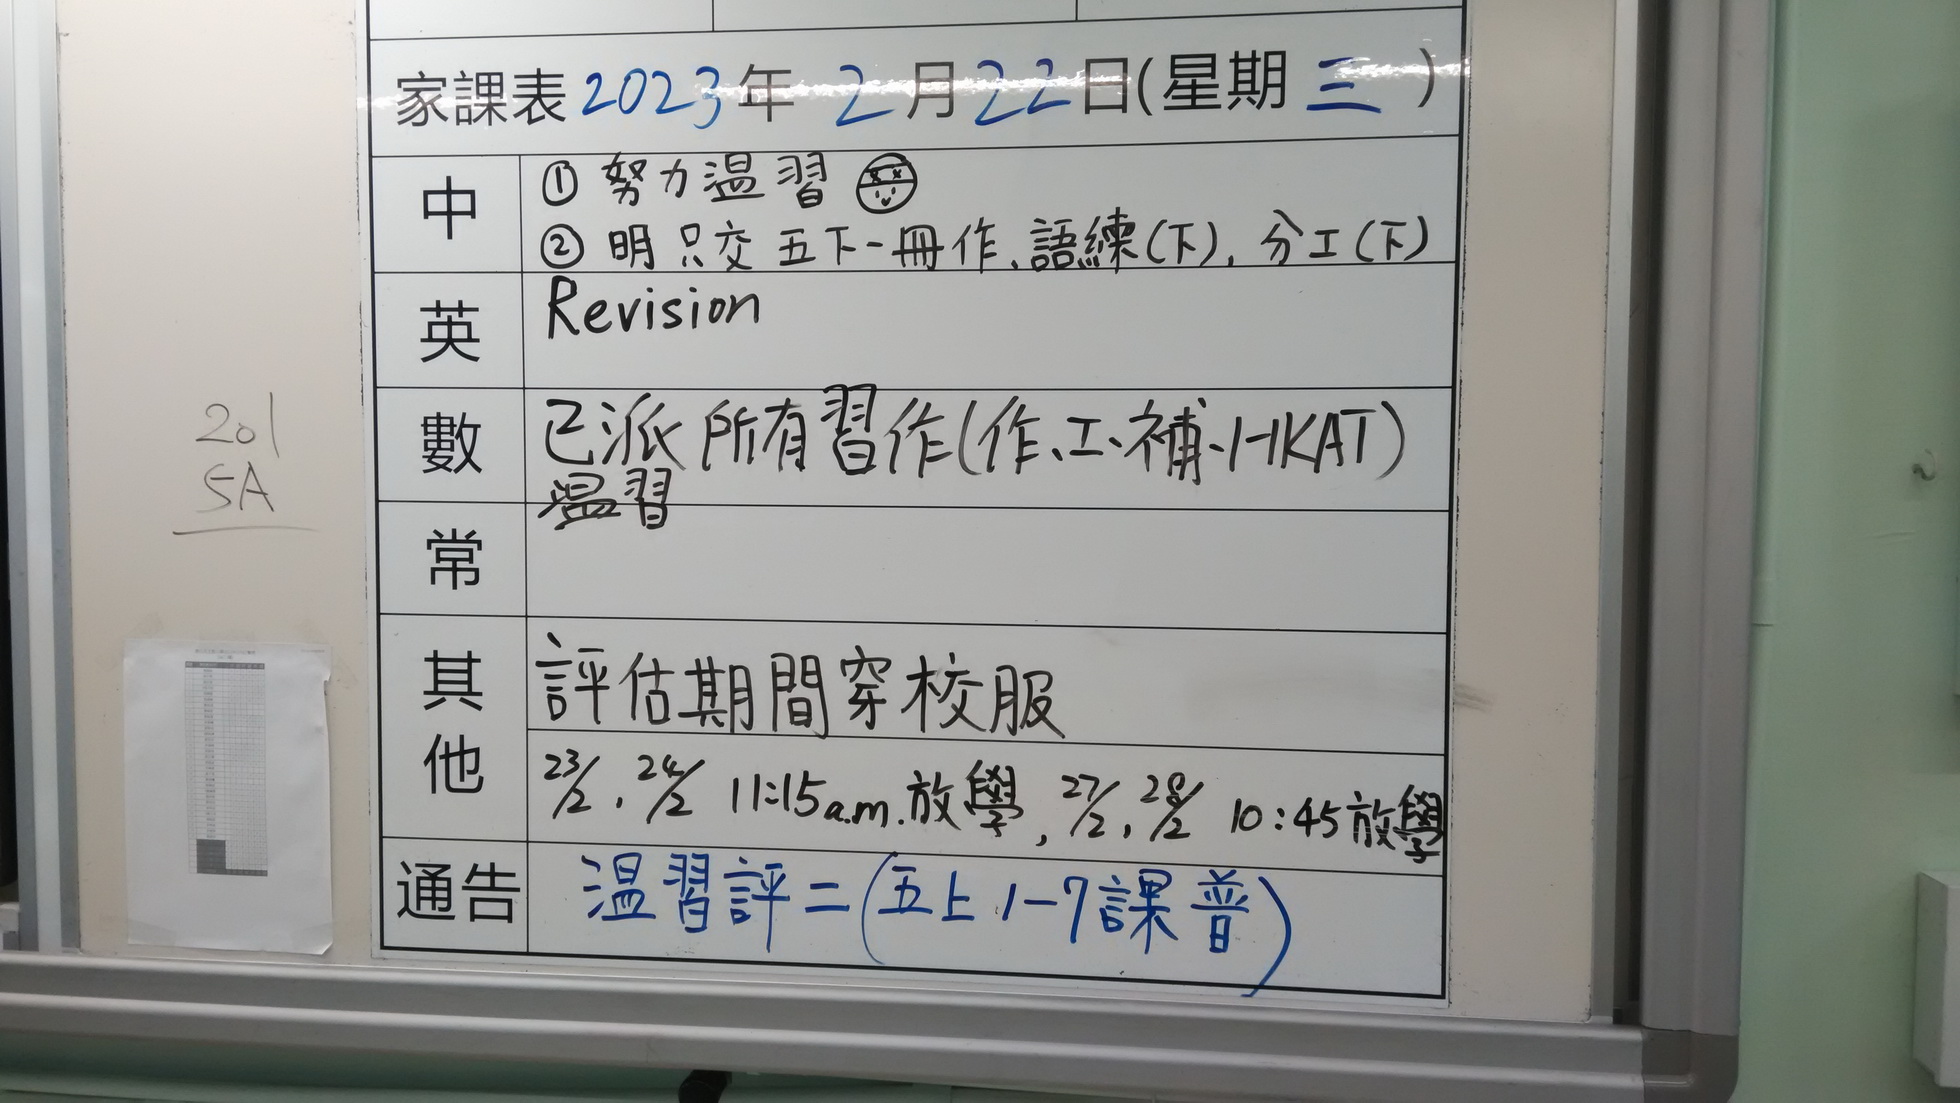 家課表 2023年 2月22日(星期三)
中
① 努力温習
② 明只交五下一冊作、語練(下), 分工(下)
英
Revision
數
已派所有習作(作、工、補、HKAT)
温習
常
其他
評估期間穿校服
23/2, 24/2 11:15a.m.放學, 27/2, 28/2 10:45放學
通告
温習評二(五上1-7課普)
201
5A